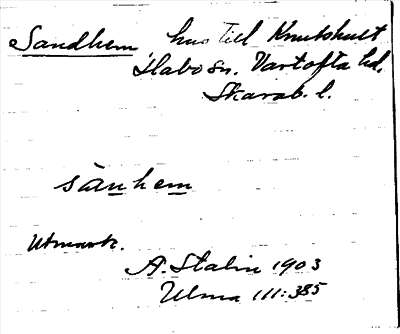 Sandhem, hus till Knutshult
Habo sn. Vartofta hd.
Skarab. l.
sànhem
Utmark.
A. Stalin 1903
Ulma 111:385